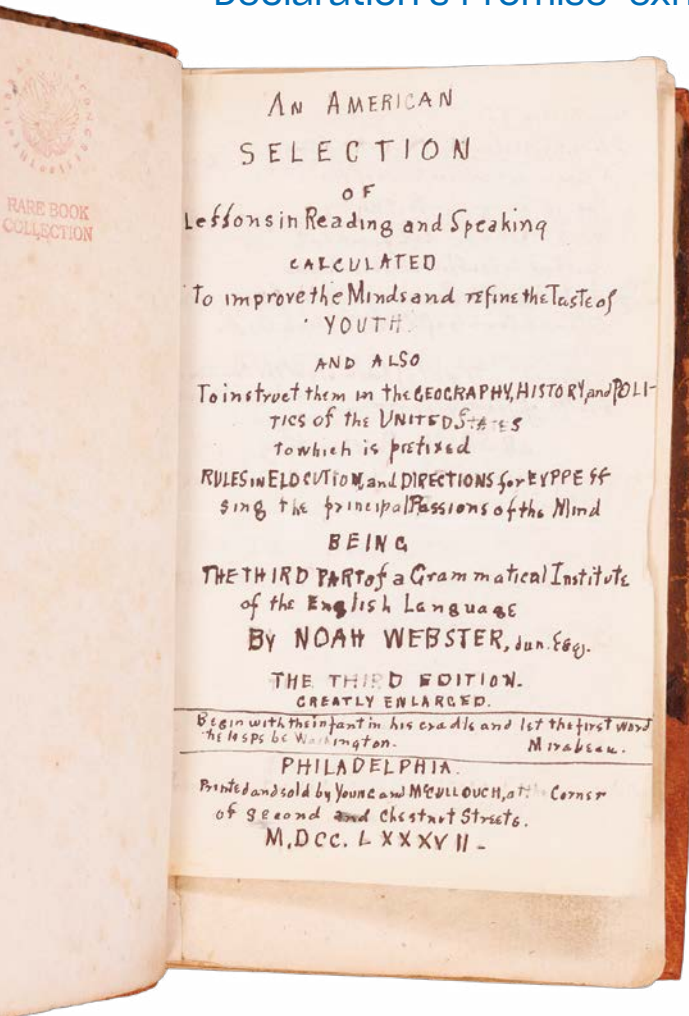 Declaration's Promise" exh
RARE BOOK
COLLECTION
AN AMERICAN
SELECTION
OF
Leſſons in Reading and Speaking
CALCULATED
To improve the Minds and refine the Taste of
YOUTH.
AND ALSO
To instruct them in the GEOGRAPHY, HISTORY, and POLI-
TICS of the UNITED STATES
to which is prefixed
RULES in ELOCUTION, and DIRECTIONS for EXPRESſ
sing the principal Passions of the Mind
BEING
THE THIRD PART of a Grammatical Institute
of the English Language
BY NOAH WEBSTER, Jun. Esq.
THE THIRD EDITION.
GREATLY ENLARGED.
Begin with the infant in his cradle and let the first word
he lisps be Washington. Mirabeau.
PHILADELPHIA.
Printed and sold by Young and McCULLOUCH, at the Corner
of second and Chestnut Streets.
M,DCC.LXXXVII-